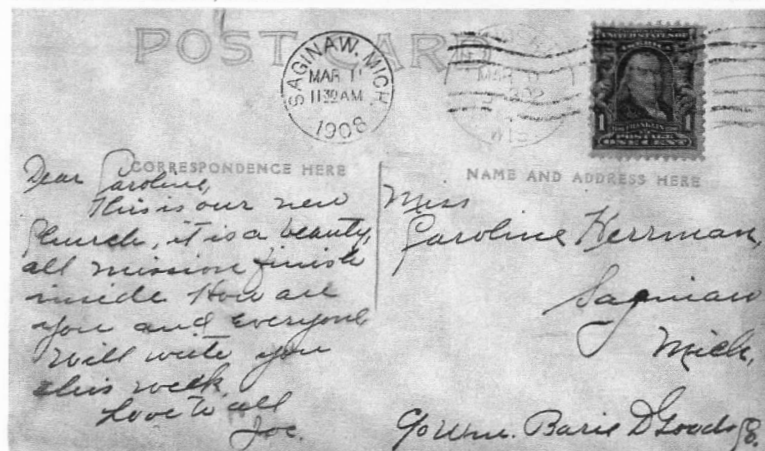 POST CARD
SAGINAW, MICH
MAR 11
11 30 AM
1908
MAR
WIS
UNITED STATES OF
AMERICA
1
FRANKLIN
1
POSTAGE
ONE CENT
CORRESPONDENCE HERE
Dear Caroline,
This is our new
Church, it is a beauty,
all mission finish
inside How are
you and everyone
Will write you
this week.
Love to all
Joe.
NAME AND ADDRESS HERE
Miss
Caroline Herrman,
Saginaw
Mich,
c/o Wm. Barie D Goods Co.